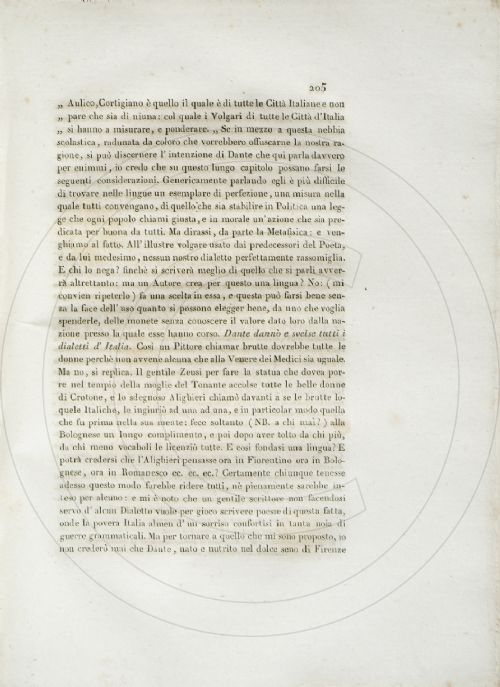 205
„ Aulico, Cortigiano è quello il quale è di tutte le Città Italiane e non
„ pare che sia di niuna: col quale i Volgari di tutte le Città d'Italia
„ si hanno a misurare, e ponderare. „ Se in mezzo a questa nebbia
scolastica, radunata da coloro che vorrebbero offuscarne la nostra ra-
gione, si può discernere l'intenzione di Dante che qui parla davvero
per enimmi, io credo che su questo lungo capitolo possano farsi le
seguenti considerazioni. Genericamente parlando egli è più difficile
di trovare nelle lingue un esemplare di perfezione, una misura nella
quale tutti convengano, di quello che sia stabilire in Politica una leg-
ge che ogni popolo chiami giusta, e in morale un'azione che sia pre-
dicata per buona da tutti. Ma dirassi, da parte la Metafisica: e ven-
ghiamo al fatto. All'illustre volgare usato dai predecessori del Poeta,
e da lui medesimo, nessun nostro dialetto perfettamente rassomiglia.
E chi lo nega? finchè si scriverà meglio di quello che si parli avver-
rà altrettanto: ma un Autore crea per questo una lingua? No: (mi
convien ripeterlo) fa una scelta in essa, e questa può farsi bene sen-
za la face dell'uso quanto si possono elegger bene, da uno che voglia
spenderle, delle monete senza conoscere il valore dato loro dalla na-
zione presso la quale esse hanno corso. Dante dannò e svelse tutti i
dialetti d'Italia. Così un Pittore chiamar brutte dovrebbe tutte le
donne perchè non avvene alcuna che alla Venere dei Medici sia uguale.
Ma no, si replica. Il gentile Zeusi per fare la statua che dovea por-
re nel tempio della moglie del Tonante accolse tutte le belle donne
di Crotone, e lo sdegnoso Alighieri chiamò davanti a se le brutte lo-
quele Italiche, le ingiuriò ad una ad una, e in particolar modo quella
che fu prima nella sua mente: fece soltanto (NB. a chi mai?) alla
Bolognese un lungo complimento, e poi dopo aver tolto da chi più,
da chi meno vocaboli le licenziò tutte. E così fondasi una lingua? E
potrà credersi che l'Alighieri pensasse ora in Fiorentino ora in Bolo-
gnese, ora in Romanesco ec. ec. ec.? Certamente chiunque tenesse
adesso questo modo farebbe ridere tutti, nè pienamente sarebbe in-
teso per alcuno: e mi è noto che un gentile scrittore non facendosi
servo d'alcun Dialetto vuole per gioco scrivere poesie di questa fatta,
onde la povera Italia almen d'un sorriso confortisi in tanta noia di
guerre grammaticali. Ma per tornare a quello che mi sono proposto, io
non crederò mai che Dante, nato e nutrito nel dolce seno di Firenze